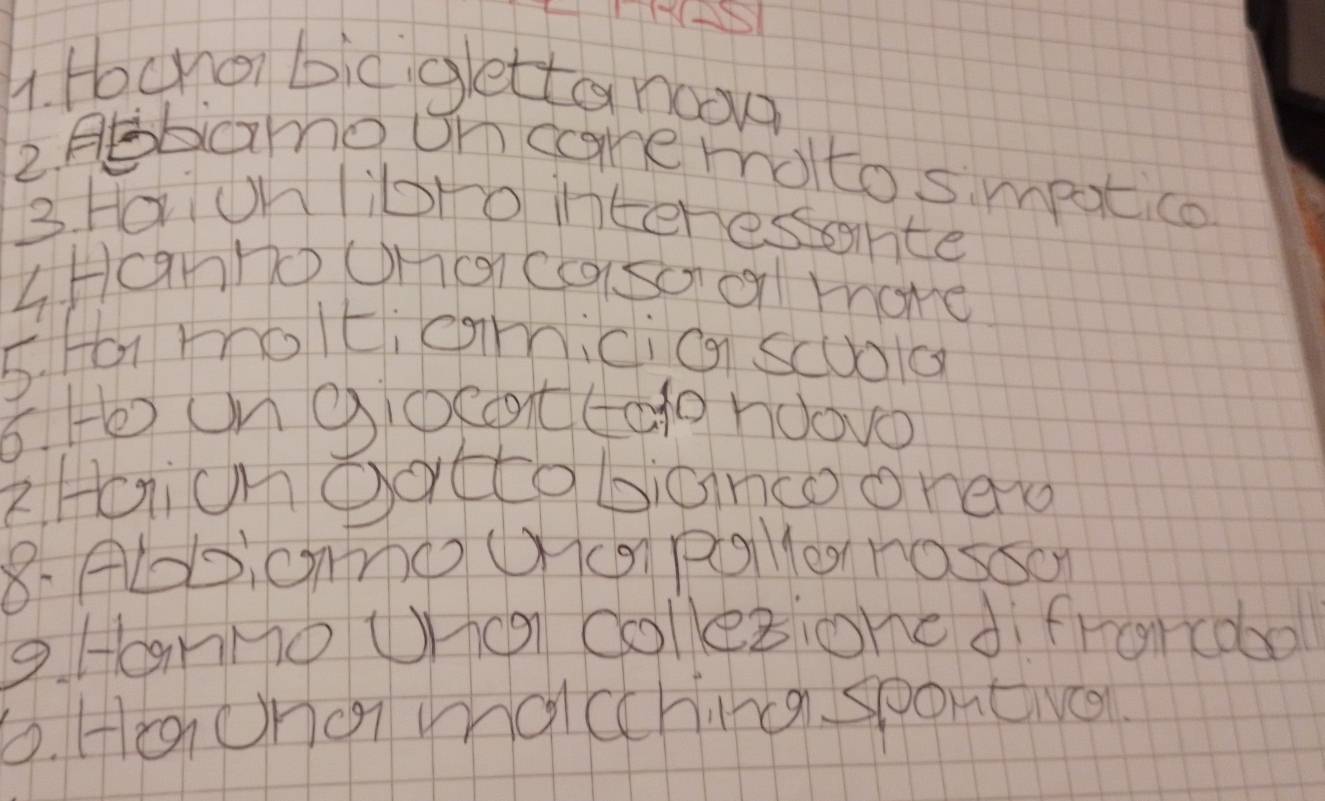 FRASI
1. Ho una bicigletta nuova
2. Abbiamo un cane molto simpatico.
3. Hai un libro interessante
4. Hanno una casa al mare
5. Ha molti amici a scuola
6. Ho un giocattalo nuovo
7. Hai un gatto bianco o nero
8. Abbiamo una palla rossa
9. Hanno una collezione di francoboll
10. Ha una macchina sportiva.